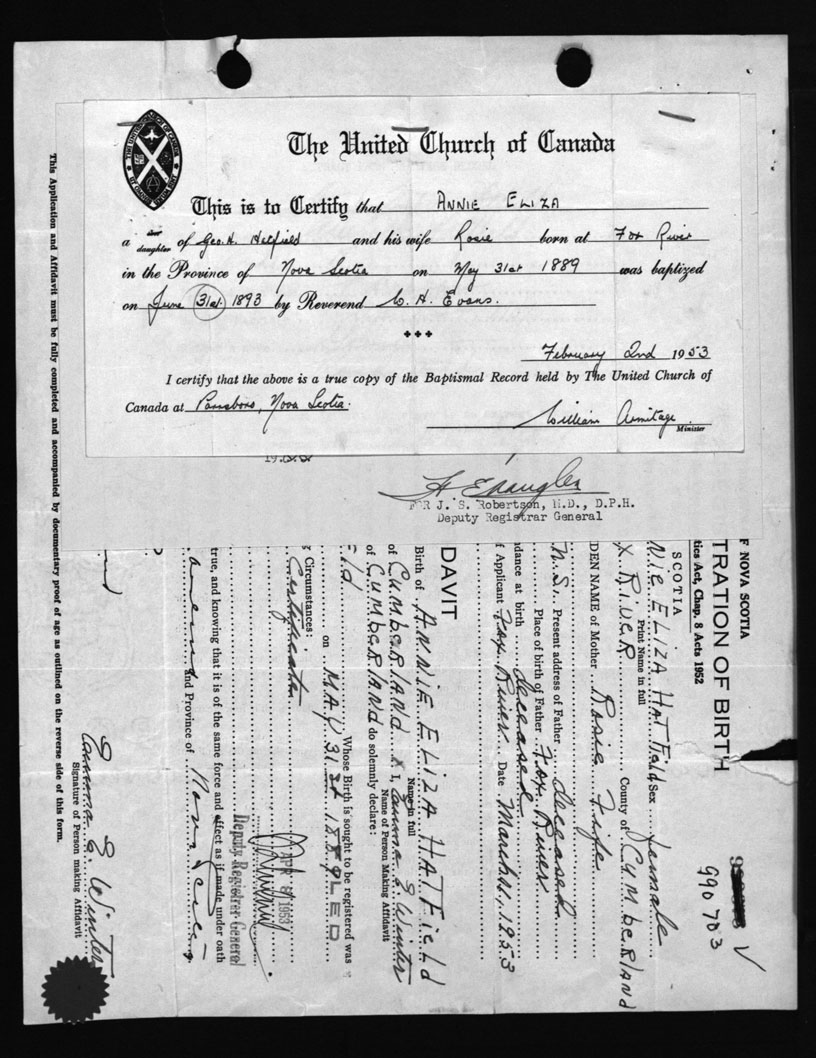 The United Church of Canada
This is to Certify that ANNIE ELIZA
a daughter of Geo. H. Hatfield and his wife Rosie born at Fox River
in the Province of Nova Scotia on May 31st 1889 was baptized
on June 31st 1893 by Reverend C. H. Evans.
February 2nd 1953
I certify that the above is a true copy of the Baptismal Record held by The United Church of
Canada at Parrsboro, Nova Scotia.
William Armitage
Minister
FOR J. S. Robertson, M.D., D.P.H.
Deputy Registrar General
F NOVA SCOTIA
TRATION OF BIRTH
ties Act, Chap. 8 Acts 1952
990703
SCOTIA
NIE ELIZA HATFIELD Sex female
Print Name in full
X RIVER County of CUMBERLAND
DEN NAME of Mother Rosie Fife
N.S. Present address of Father deceased
Place of birth of Father Fox River
dance at birth deceased
f Applicant Fox River Date March 1953
DAVIT
Birth of ANNIE ELIZA HATFIELD
Name in full
of CUMBERLAND I, Emma E Winter
Name of Person Making Affidavit
of CUMBERLAND do solemnly declare:
Whose Birth is sought to be registered was
on MAY 31st 1889
LED
Circumstances:
Certificate
APR 8 1953
Deputy Registrar General
true, and knowing that it is of the same force and effect as if made under oath
and Province of Nova Scotia
Emma E. Winter
Signature of Person making Affidavit
This Application and Affidavit must be fully completed and accompanied by documentary proof of age as outlined on the reverse side of this form.